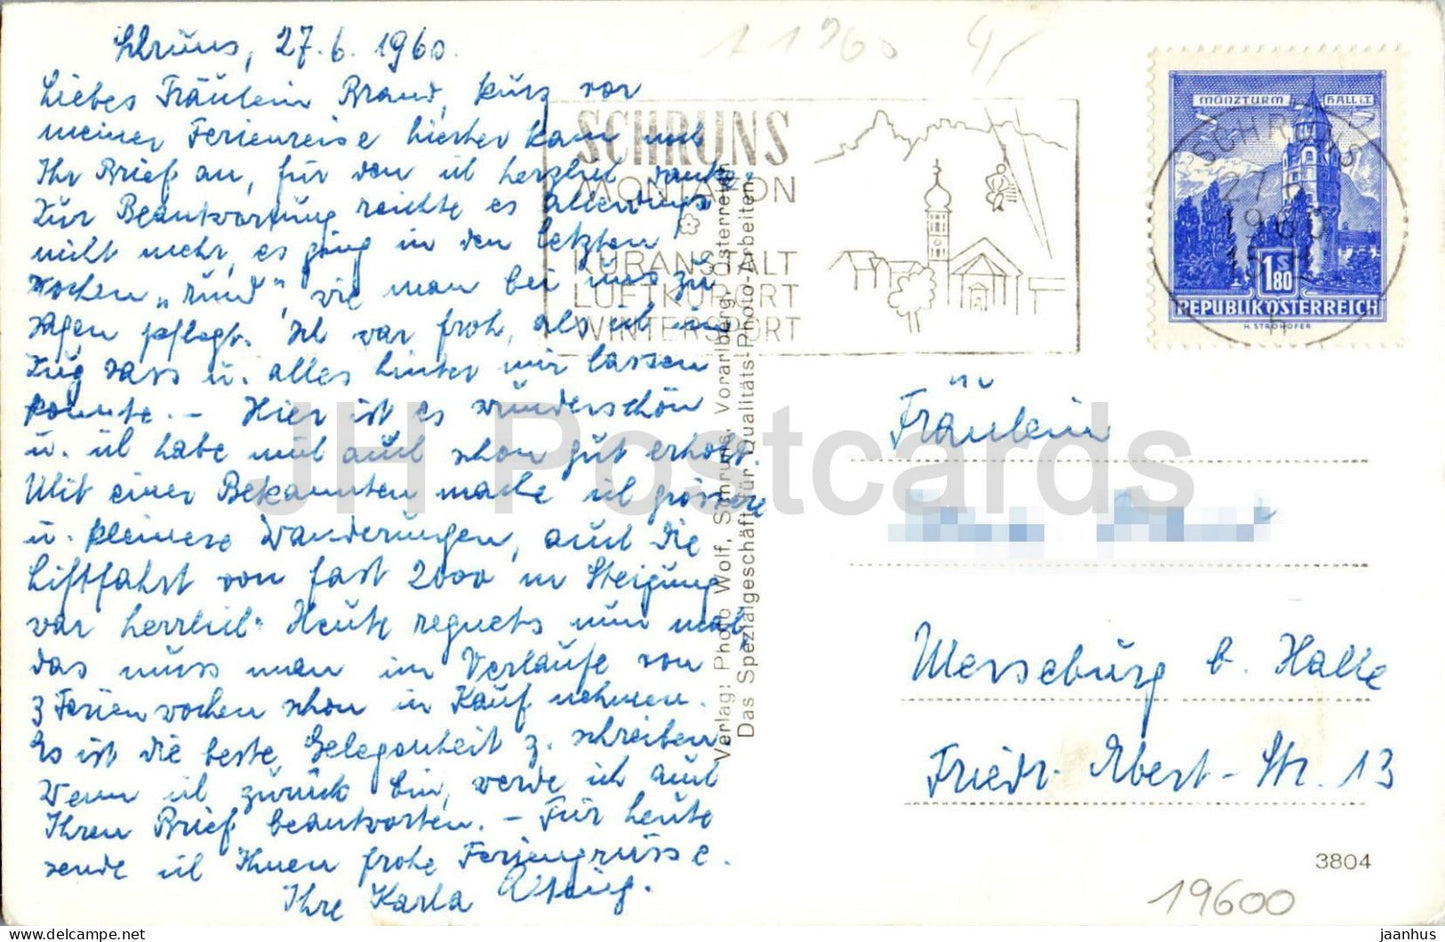 Schruns, 27.6.1960.
Liebes Fräulein Brand, kurz vor
meiner Ferienreise hierher kam noch
Ihr Brief an, für den ich herzlich danke.
Zur Beantwortung reichte es allerdings
nicht mehr, es ging in den letzten
Wochen „rund", wie man bei uns zu
sagen pflegt. Ich war froh, als ich im
Zug sass u. alles hinter mir lassen
konnte. – Hier ist es wunderschön
u. ich habe mich auch schon gut erholt.
Mit einer Bekannten mache ich grössere
u. kleinere Wanderungen, auch die
Liftfahrt von fast 2000 m Steigung
war herrlich. Heute regnets nun mal,
das muss man im Verlaufe von
3 Ferienwochen schon in Kauf nehmen.
Es ist die beste Gelegenheit z. schreiben.
Wenn ich zurück bin, werde ich auch
Ihren Brief beantworten. – Für heute
sende ich Ihnen frohe Feriengrüsse.
Ihre Karla
1960
SCHRUNS
MONTAFON
KURANSTALT
LUFTKURORT
WINTERSPORT
Verlag: Photo Wolf, Schruns, Vorarlberg, Österreich
Das Spezialgeschäft für Qualitäts-Photo-Arbeiten
MÜNZTURM HALL i.T.
SCHRUNS
27.
1960
1S 80
REPUBLIK ÖSTERREICH
H. STROHOFER
Fräulein
Merseburg b. Halle
Friedr. Ebert-Str. 13
3804
19600
JH Postcards
jaanhus @ www.delcampe.net